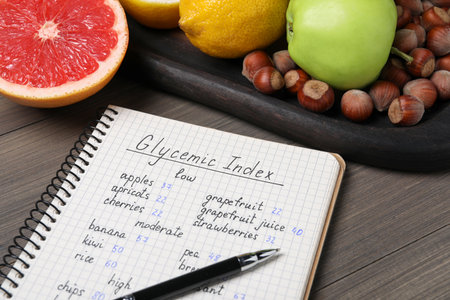 Glycemic Index
low
apples 37
apricots 22
cherries 22
grapefruit 22
grapefruit juice 40
strawberries 32
moderate
banana 67
kiwi 50
rice 60
pea 48
high
chips 80